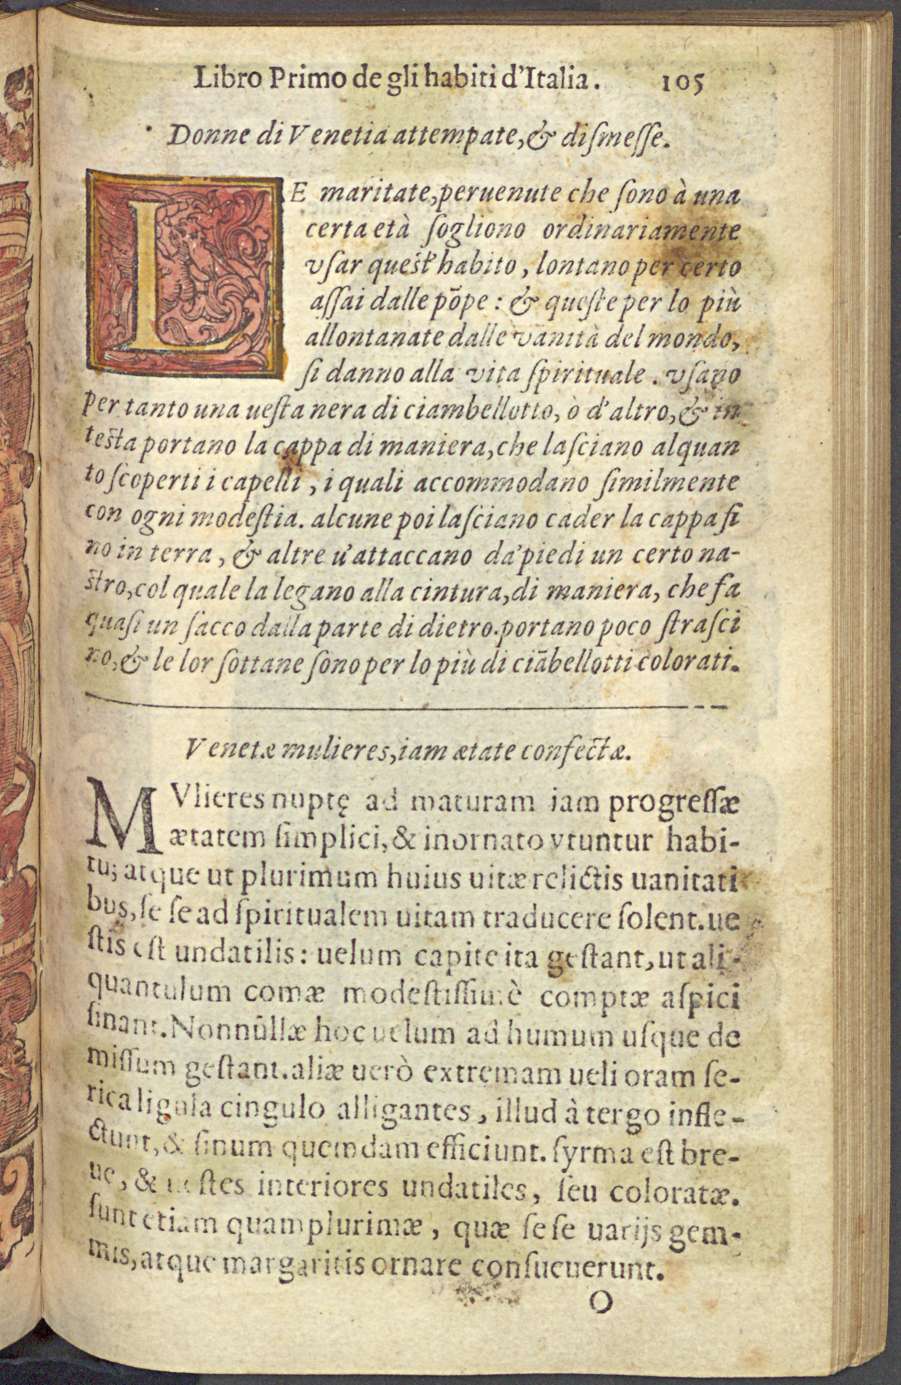 Libro Primo de gli habiti d'Italia. 105
Donne di Venetia attempate, & diſmeſſe.
LE maritate, peruenute che ſono à una
certa età ſogliono ordinariamente
vſar queſt' habito, lontano per certo
aſſai dalle põpe: & queſte per lo più
allontanate dalle vanità del mondo,
ſi danno alla vita ſpirituale. vſano
per tanto una ueſta nera di ciambellotto, ò d'altro, & in
teſta portano la cappa di maniera, che laſciano alquan
to ſcoperti i capelli, i quali accommodano ſimilmente
con ogni modeſtia. alcune poi laſciano cader la cappa fi
no in terra, & altre u'attaccano da' piedi un certo na-
ſtro, col quale la legano alla cintura, di maniera, che fa
quaſi un ſacco dalla parte di dietro. portano poco ſtraſci
no, & le lor ſottane ſono per lo più di ciãbellotti colorati.
Venetæ mulieres, iam ætate confectæ.
MVlieres nuptę ad maturam iam progreſſæ
ætatem ſimplici, & inornato vtuntur habi-
tu; atque ut plurimum huius uitæ relictis uanitati
bus, ſe ſe ad ſpiritualem uitam traducere ſolent. ue
ſtis eſt undatilis: uelum capite ita geſtant, ut ali-
quantulum comæ modeſtiſſimè comptæ aſpici
ſinant. Nonnûllæ hoc uelum ad humum uſque de
miſſum geſtant. aliæ uerò extremam ueli oram ſe-
rica ligula cingulo alligantes, illud à tergo infle-
ctunt, & ſinum quemdam efficiunt. ſyrma eſt bre-
ue, & ueſtes interiores undatiles, ſeu coloratæ.
ſunt etiam quamplurimæ, quæ ſe ſe uarijs gem-
mis, atque margaritis ornare conſueuerunt.
O